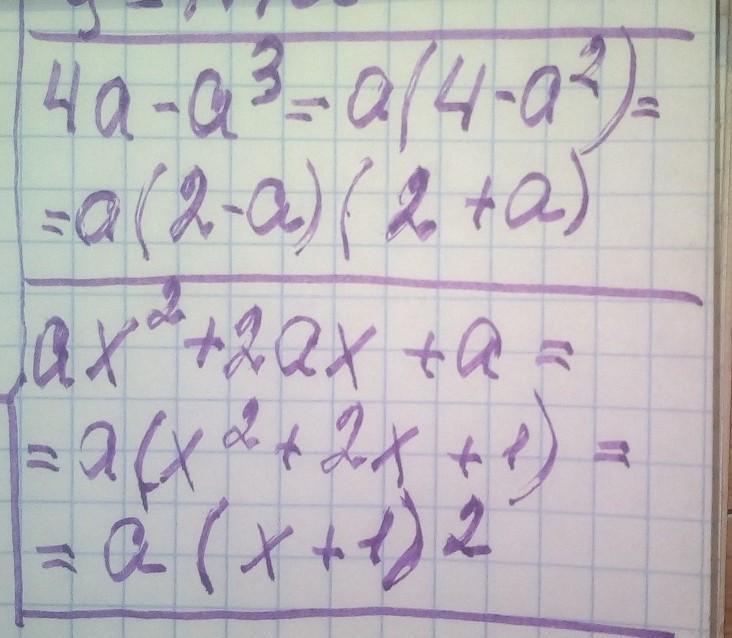 4a-a³=a(4-a²)=
=a(2-a)(2+a)
ax²+2ax+a=
=a(x²+2x+1)=
=a(x+1)2